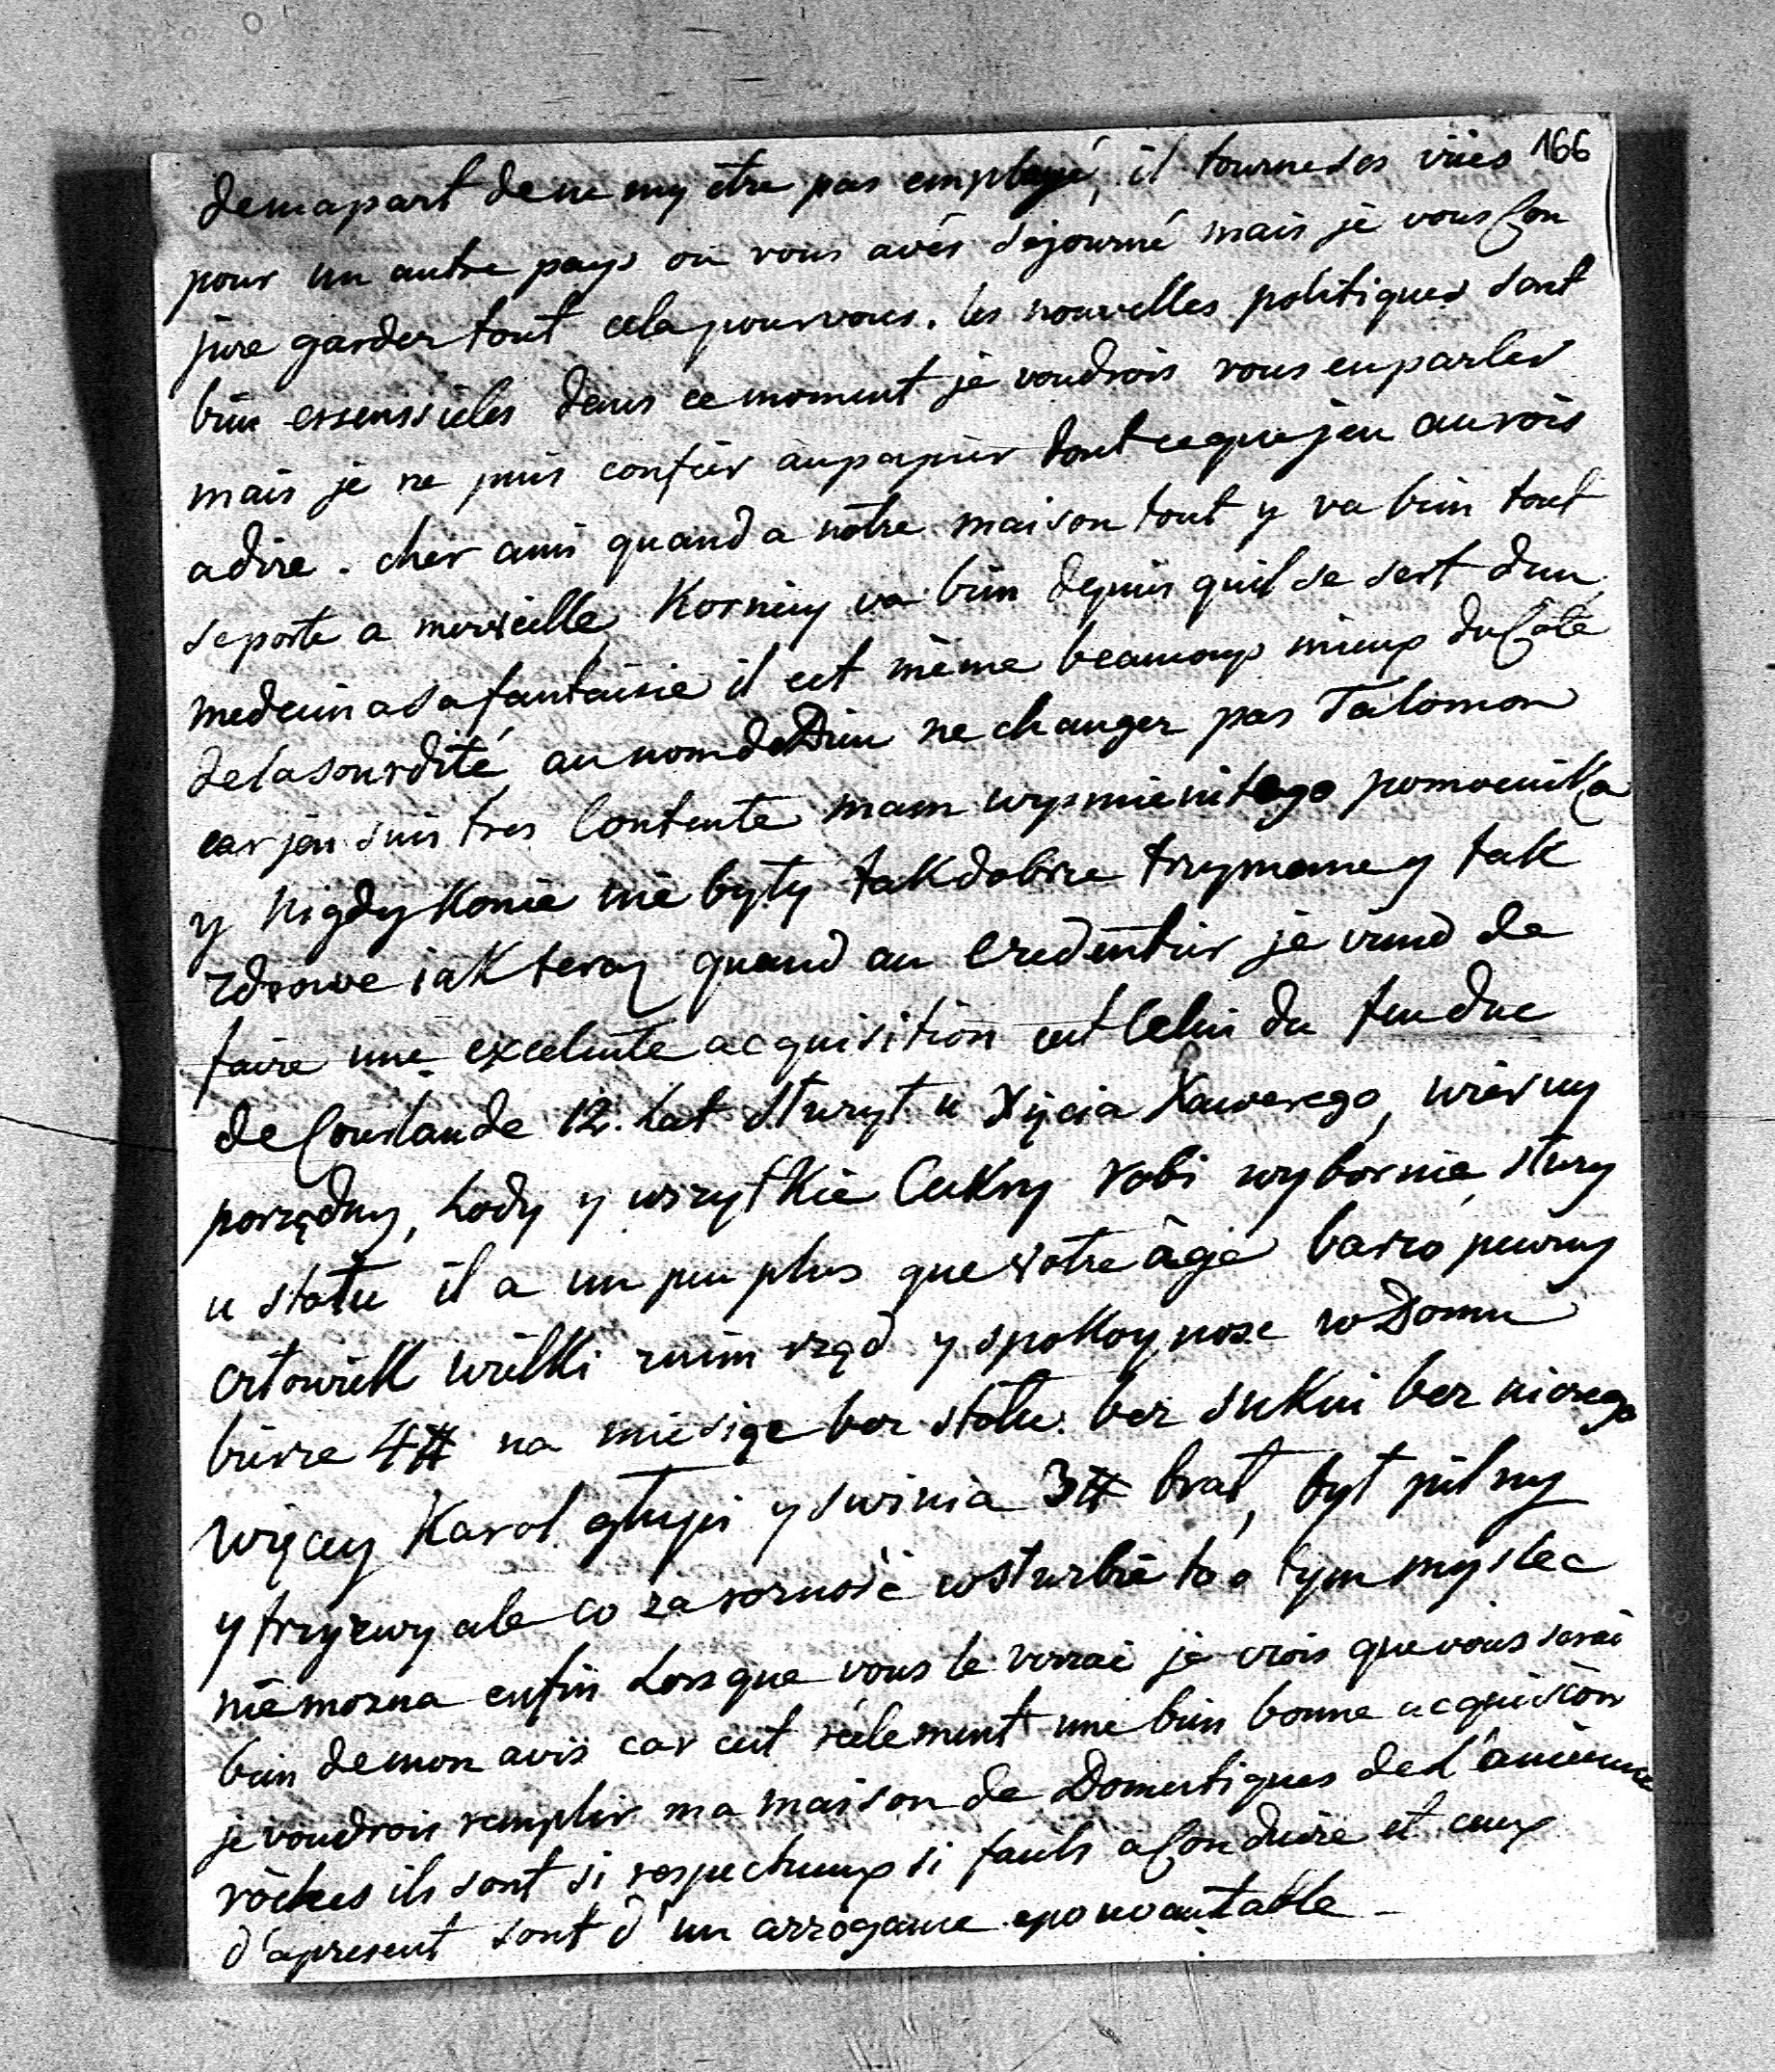 166
demapart dene my être pas employé, il tourne ses vües
pour un autre pays ou vous avés sejourné mais je vous Con
jure garder tout cela pour vous. les nouvelles politiques sont
bien essensieles dens ce moment je voudrois vous en parler
mais je ne puis confier aupapier tout ceque jen aurois
adire. cher ami quand a nôtre maison tout y va bien tout
se porte a merveille, Korniny va bien depuis quil se sert dun
medecin a sa fantaisie il est même beaucoup mieux du Coté
delasourdité, au nom de Dieu ne changer pas Talomon
car jen suis tres Contente mam wysmienitego pomocnika
y nigdy Konie nie były tak dobrze trzymane y tak
zdrowe iak teraz quand au Credentier je viend de
faire une excelente acquisition cest Celui du feu duc
de Courlande 12. Lat służył u Xięcia Xawerego, wierny
porządny, Lody y wszytkie Cukry robi wybornie, służy
u stołu il a un peu plus que votre âge barzo pewny
człowiek wielki znim rząd y spokoynosc w Domu
bierze 4# na miesiąc bez stołu. bez sukni bez niczego
więcey Karol głupi y swinia 3# brał, był pilny
y trzyźwy ale co za rożność wsłużbie to o tym myslec
niemozna enfin Lorsque vous le verrai je crois que vous serai
bien demon avis car cest réelement une bien bonne acquisicion
je voudrois remplir ma maison de Domestiques de L'anciene
rôches ils sont si respectueux si facils a Conduire et ceux
d'apresent sont d'un arrogance epouvantable -